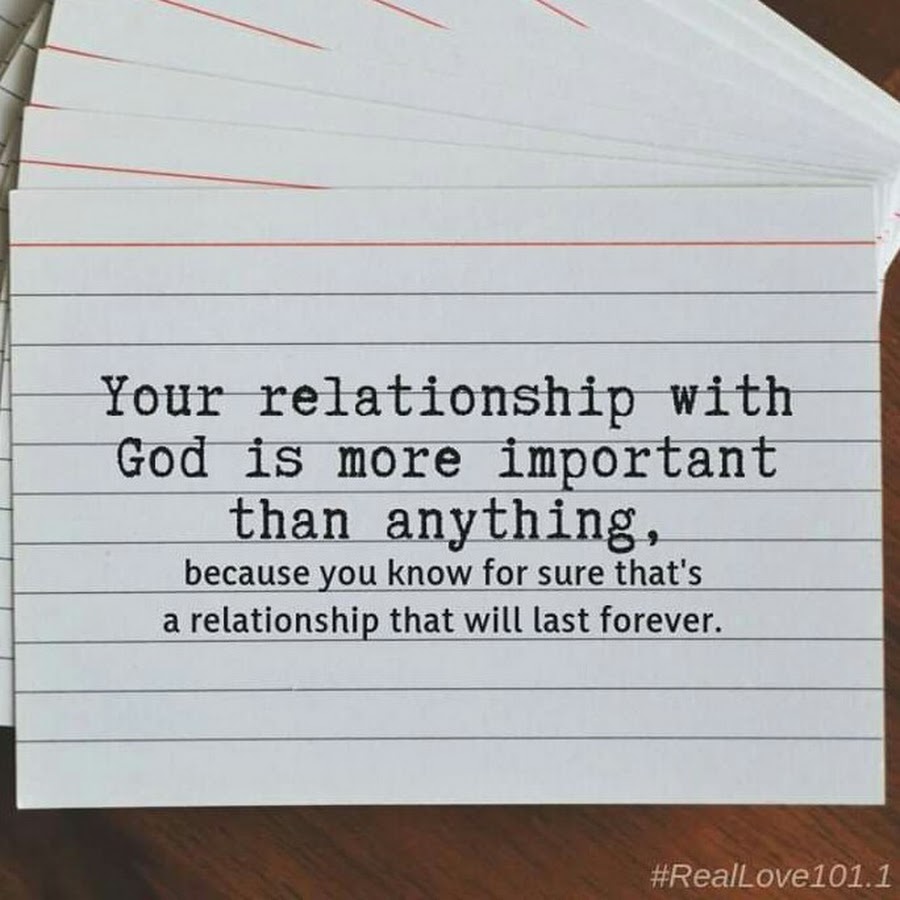 Your relationship with
God is more important
than anything,
because you know for sure that's
a relationship that will last forever.
#RealLove101.1